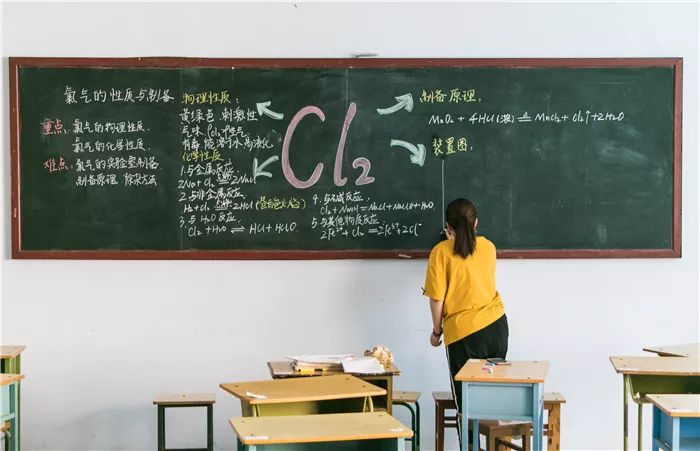 氯气的性质与制备
重点：氯气的物理性质.
氯气的化学性质.
难点：氯气的实验室制备
制备原理 除杂方法
物理性质：
黄绿色 刺激性
气味
有毒 能溶于水 易液化
化学性质
1.与金属反应
2.与非金属反应
H₂+Cl₂ 2HCl
3.与H₂O反应
Cl₂+H₂O ⇌ HCl+HClO
Cl₂
4.与碱反应：
Cl₂+NaOH=NaCl+NaClO+H₂O
5.与其他物质反应
2Fe²⁺+Cl₂=2Fe³⁺+2Cl⁻
制备原理：
MnO₂+4HCl(浓) MnCl₂+Cl₂↑+2H₂O
装置图：